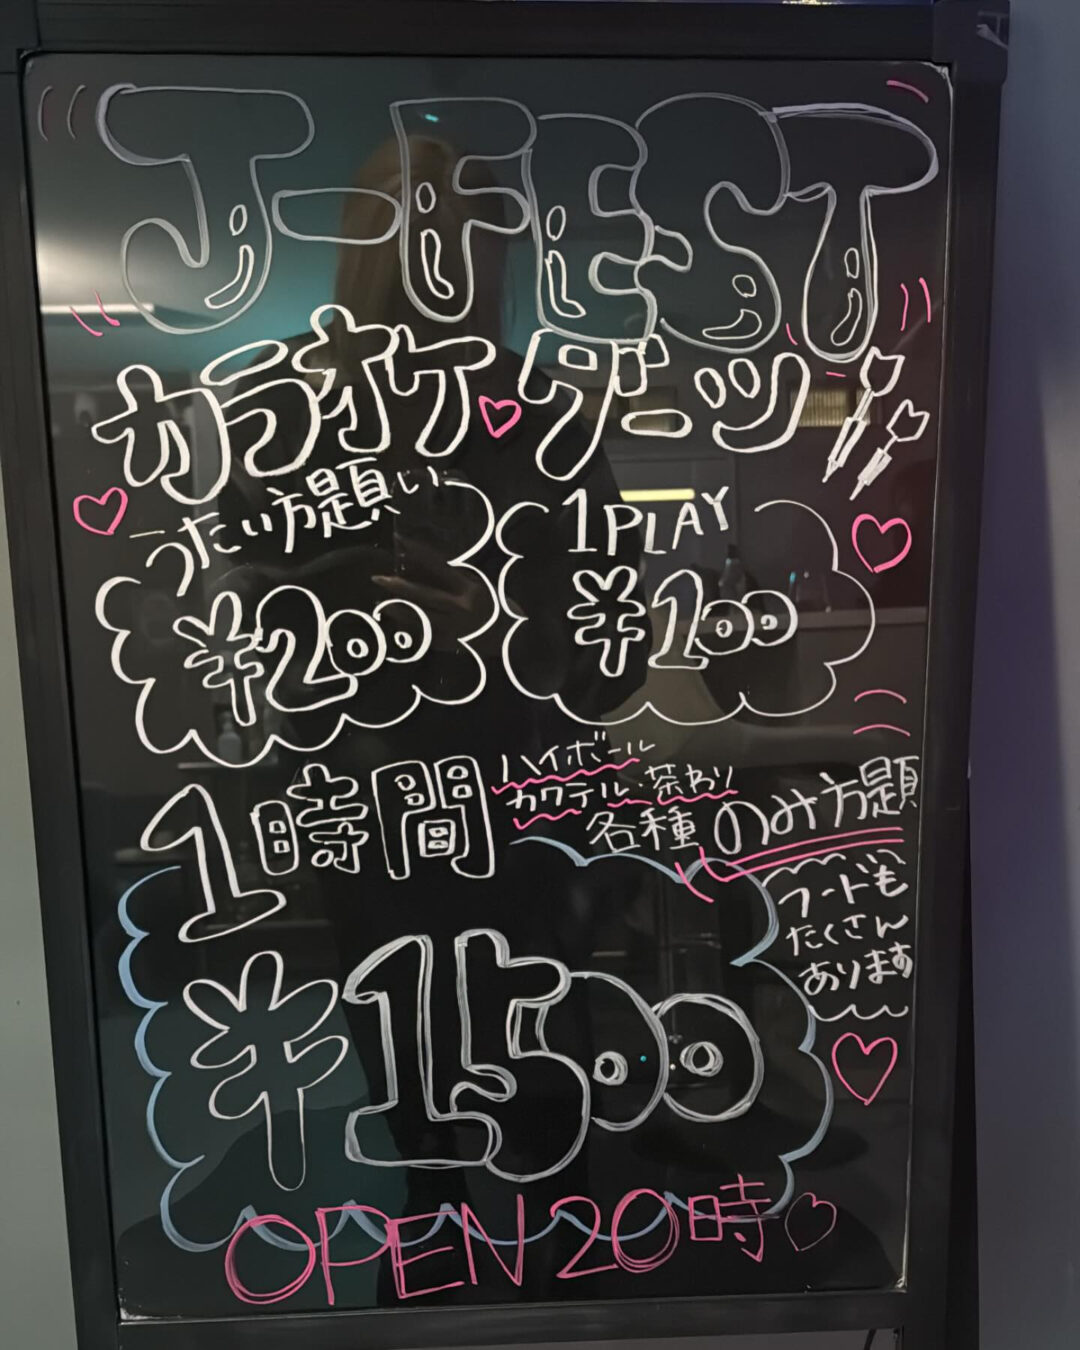 J-FEST
カラオケ♡ダーツ
うたい方題い
¥200
1PLAY
¥100
1時間
ハイボール
カクテル・茶わり
各種のみ方題
¥1500
フードも
たくさん
あります
OPEN 20時♡